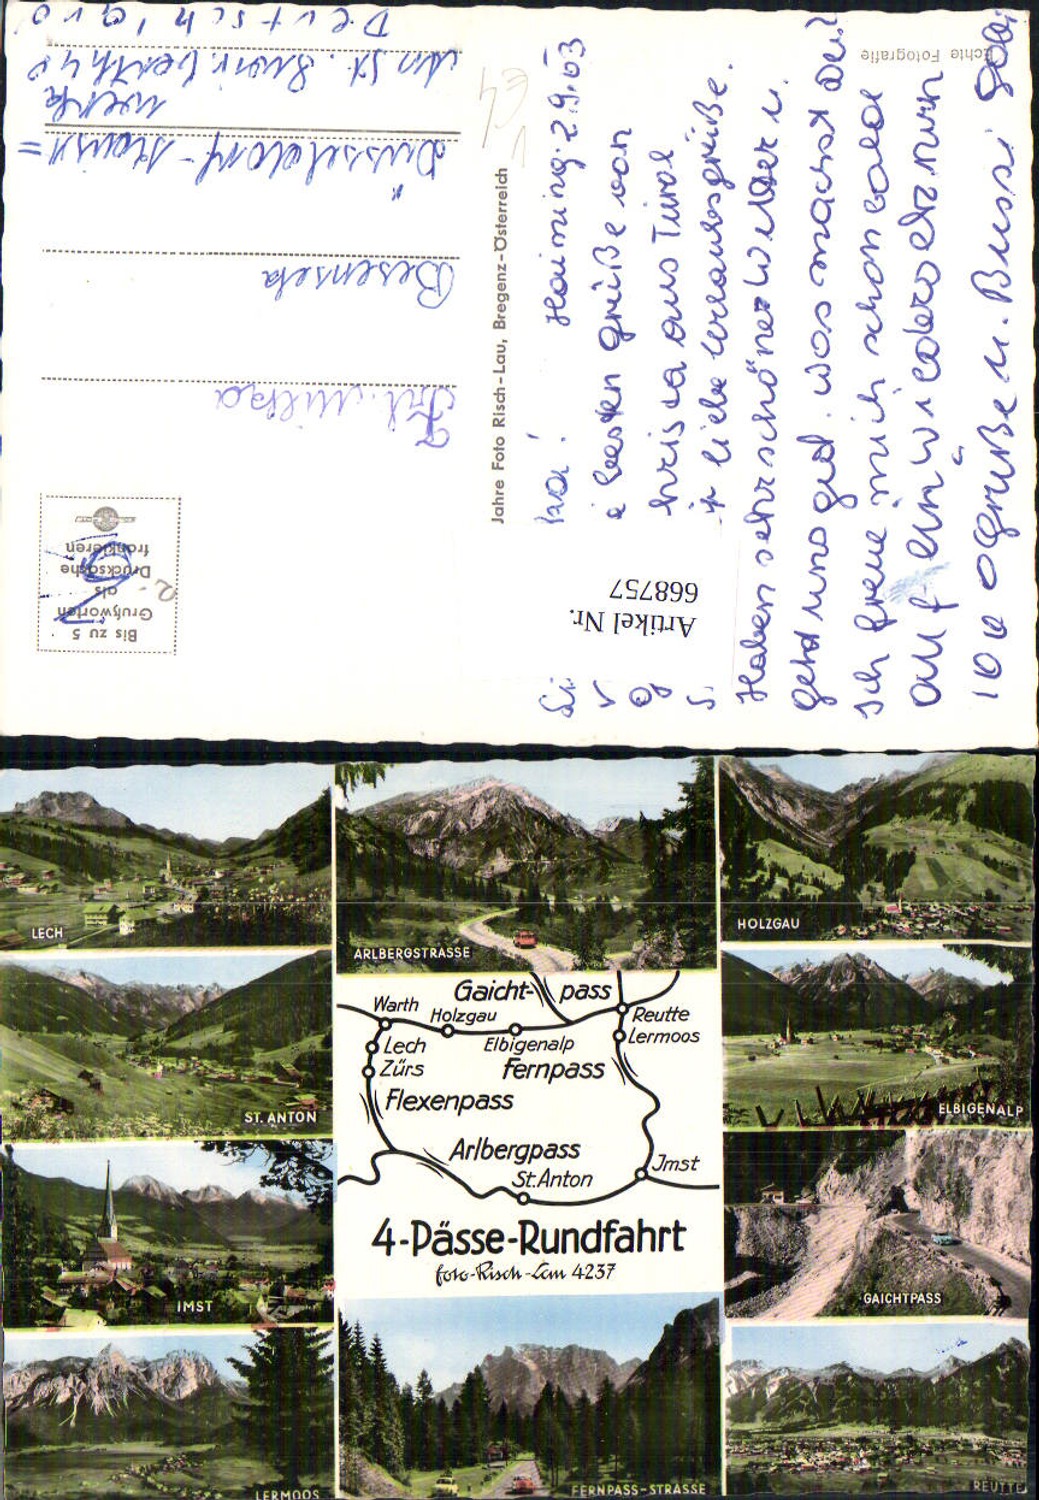 Echte Fotografie
Haiming. 2.9.63
besten grüße von
aus Tirol
liebe Urlaubsgrüße.
Haben sehr schönes Wetter u.
geht uns gut. was machst Du?
Ich freue mich schon bald
auf ein wiedersehn
grüße u. Bussi
Artikel Nr.
668757
Jahre Foto Risch-Lau, Bregenz-Österreich
Bis zu 5
Grußworten
als
Drucksache
frankieren
Frl. Milka
Düsseldorf
Deutschland
LECH
ARLBERGSTRASSE
HOLZGAU
ST. ANTON
ELBIGENALP
IMST
GAICHTPASS
LERMOOS
FERNPASS-STRASSE
REUTTE
Gaicht-pass
Warth
Holzgau
Reutte
Lech
Elbigenalp
Lermoos
Zürs
Fernpass
Flexenpass
Arlbergpass
St. Anton
Jmst
4-Pässe-Rundfahrt
foto-Risch-Lau 4237